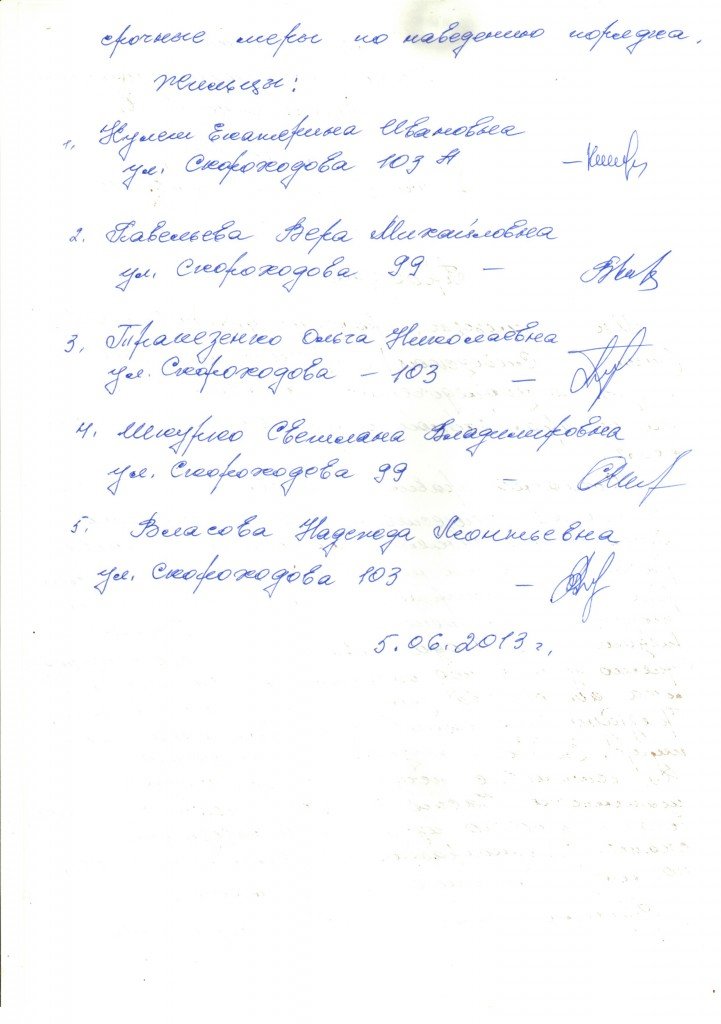 срочные меры по наведению порядка.
Жильцы:
1. Кулеш Екатерина Ивановна
ул. Скороходова 103 А –
2. Павельева Вера Михайловна
ул. Скороходова 99 –
3. Трапезенко Ольга Николаевна
ул. Скороходова – 103 –
4. Шкурко Светлана Владимировна
ул. Скороходова 99 –
5. Власова Надежда Леонтьевна
ул. Скороходова 103 –
5.06.2013 г.